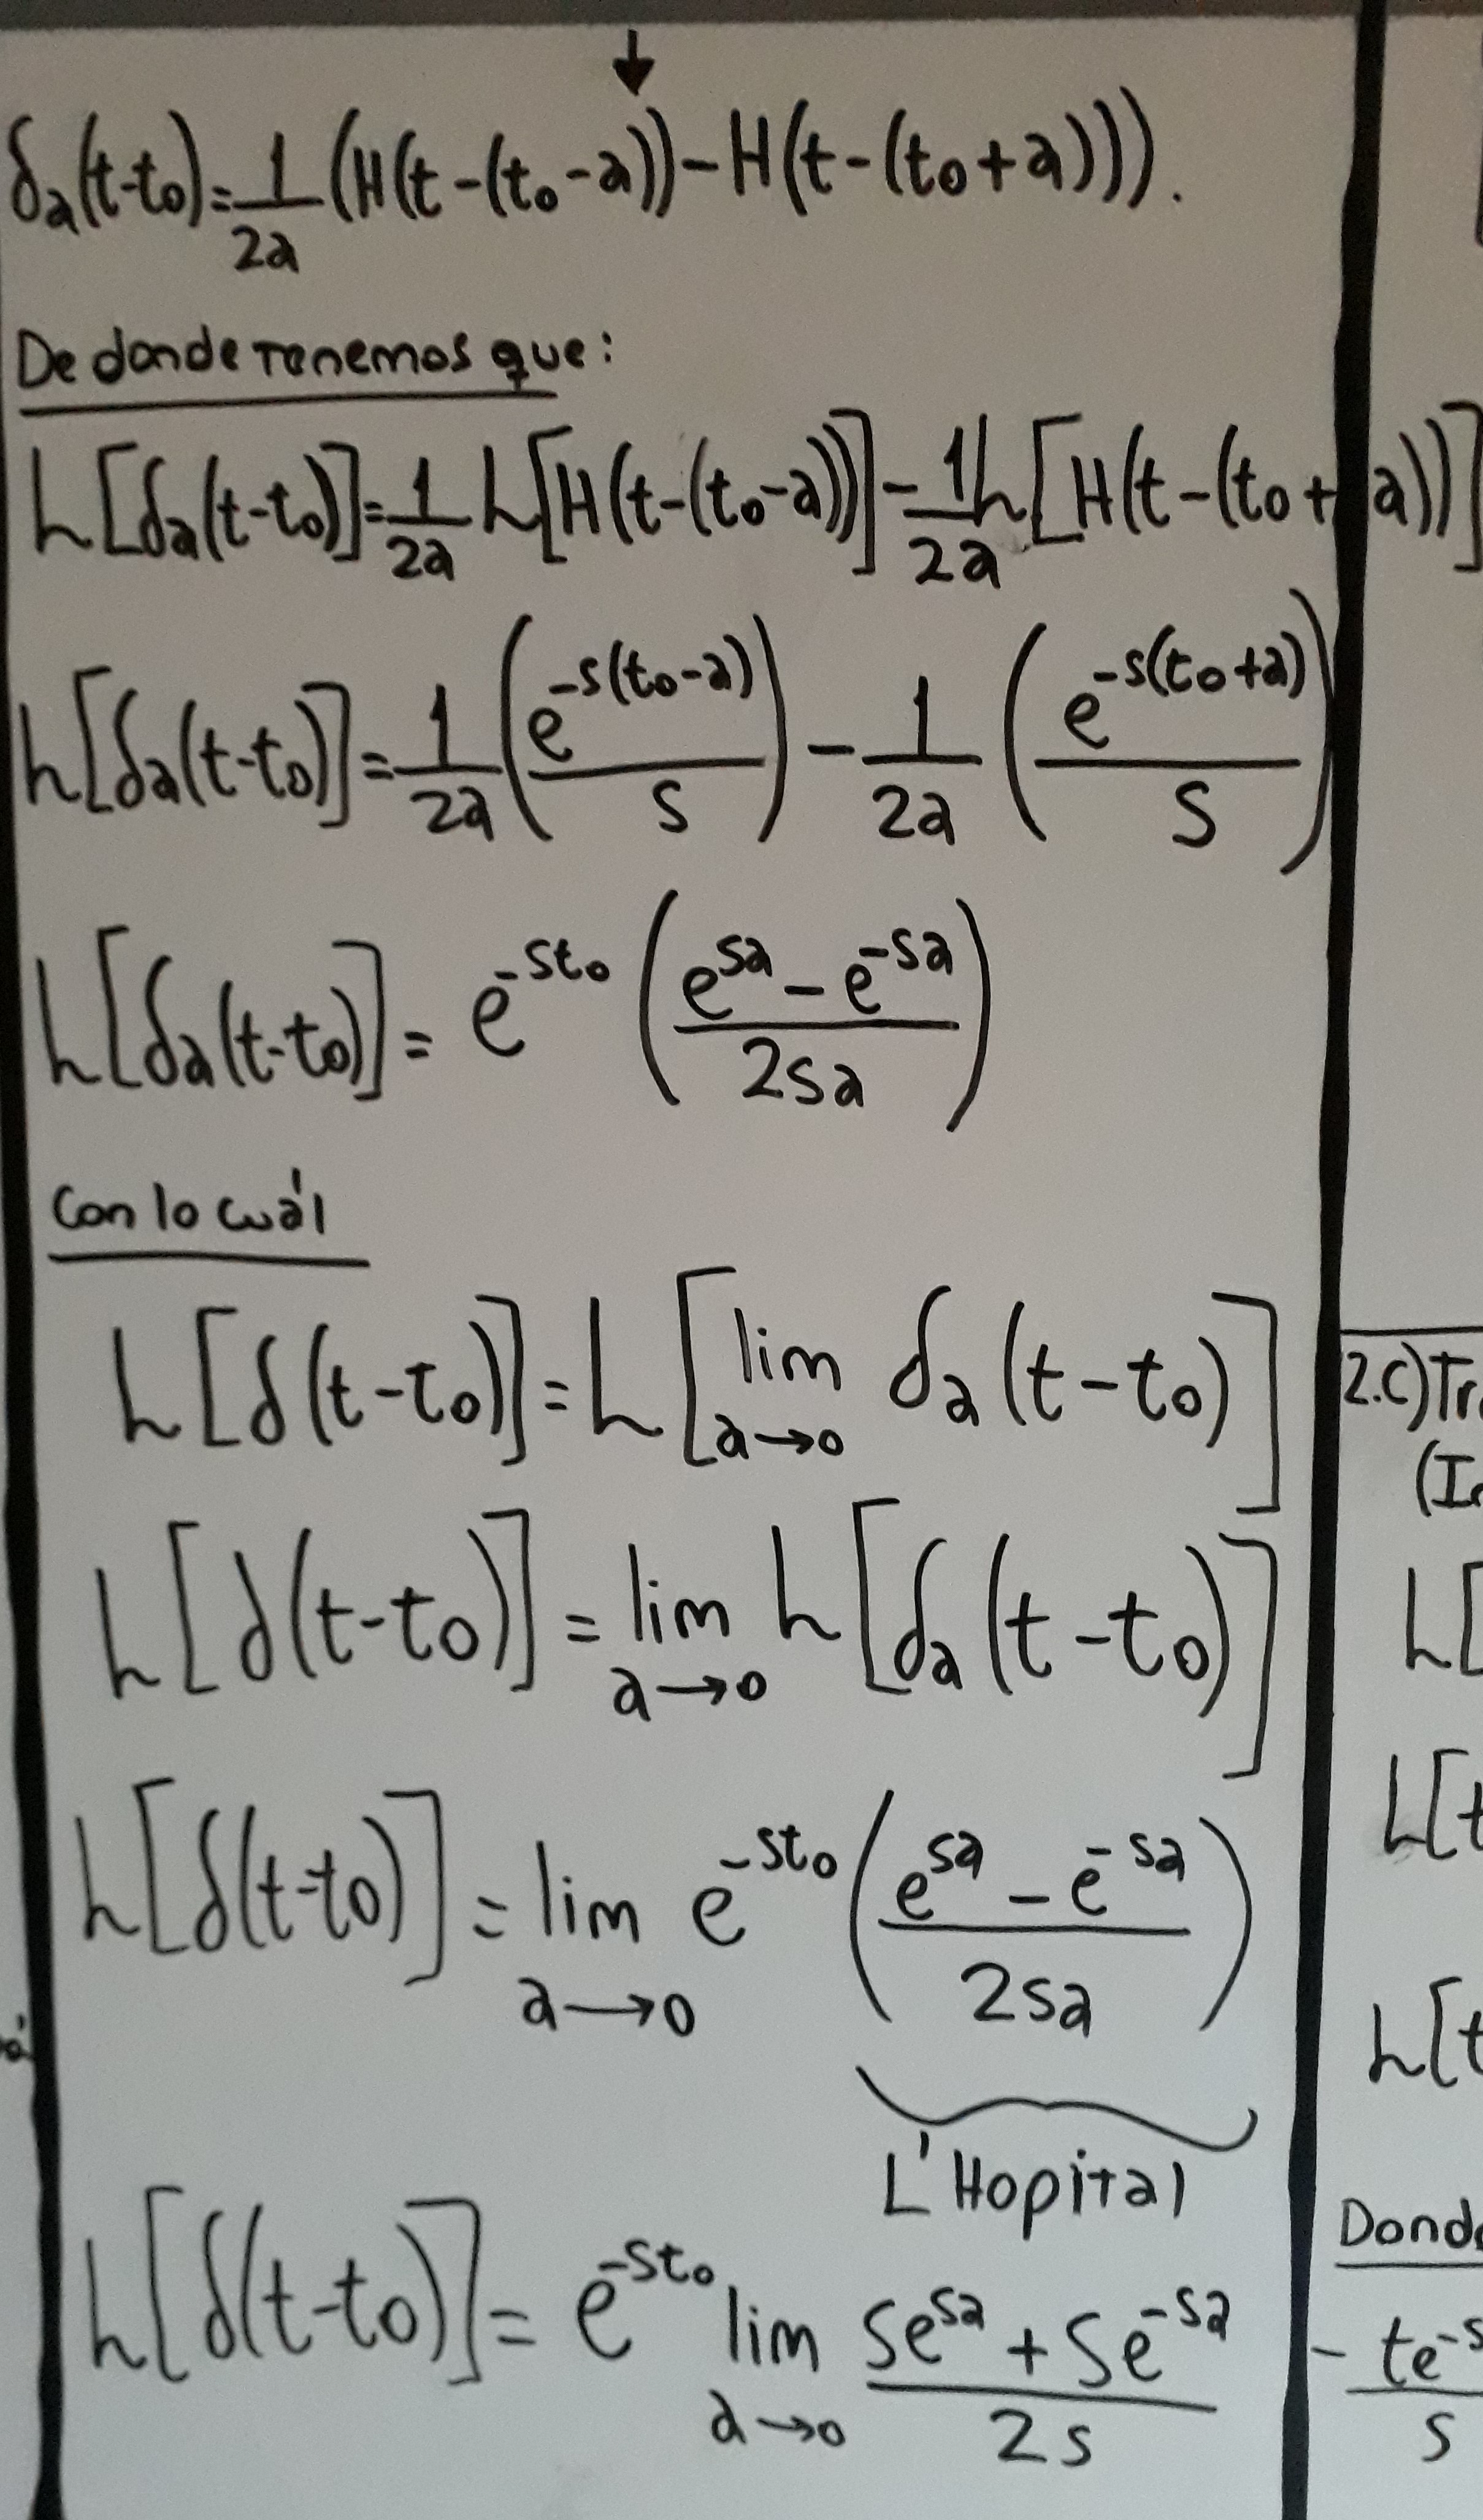 ↓
δa(t-t₀)=1/2a (H(t-(t₀-a))-H(t-(t₀+a))).
De donde tenemos que:
L[δa(t-t₀)]=1/2a L[H(t-(t₀-a))]-1/2a L[H(t-(t₀+a))]
L[δa(t-t₀)]=1/2a (e^-s(t₀-a)/s) - 1/2a (e^-s(t₀+a)/s)
L[δa(t-t₀)]= e^-st₀ (e^sa - e^-sa/2sa)
Con lo cuál
L[δ(t-t₀)]=L[lim a→0 δa(t-t₀)]
L[δ(t-t₀)]=lim a→0 L[δa(t-t₀)]
L[δ(t-t₀)]=lim a→0 e^-st₀ (e^sa - e^-sa/2sa)
L'Hopital
L[δ(t-t₀)]= e^-st₀ lim a→0 se^sa + se^-sa/2s
2.c)Tr
(I
L[
L[t
L[t
Dond
- te^-s/s